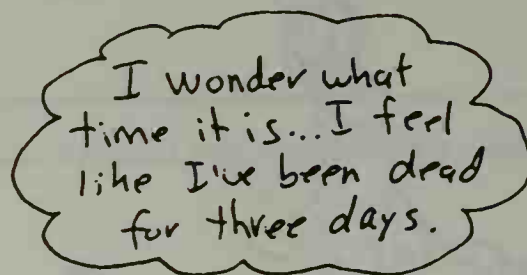 I wonder what
time it is...I feel
like I've been dead
for three days.